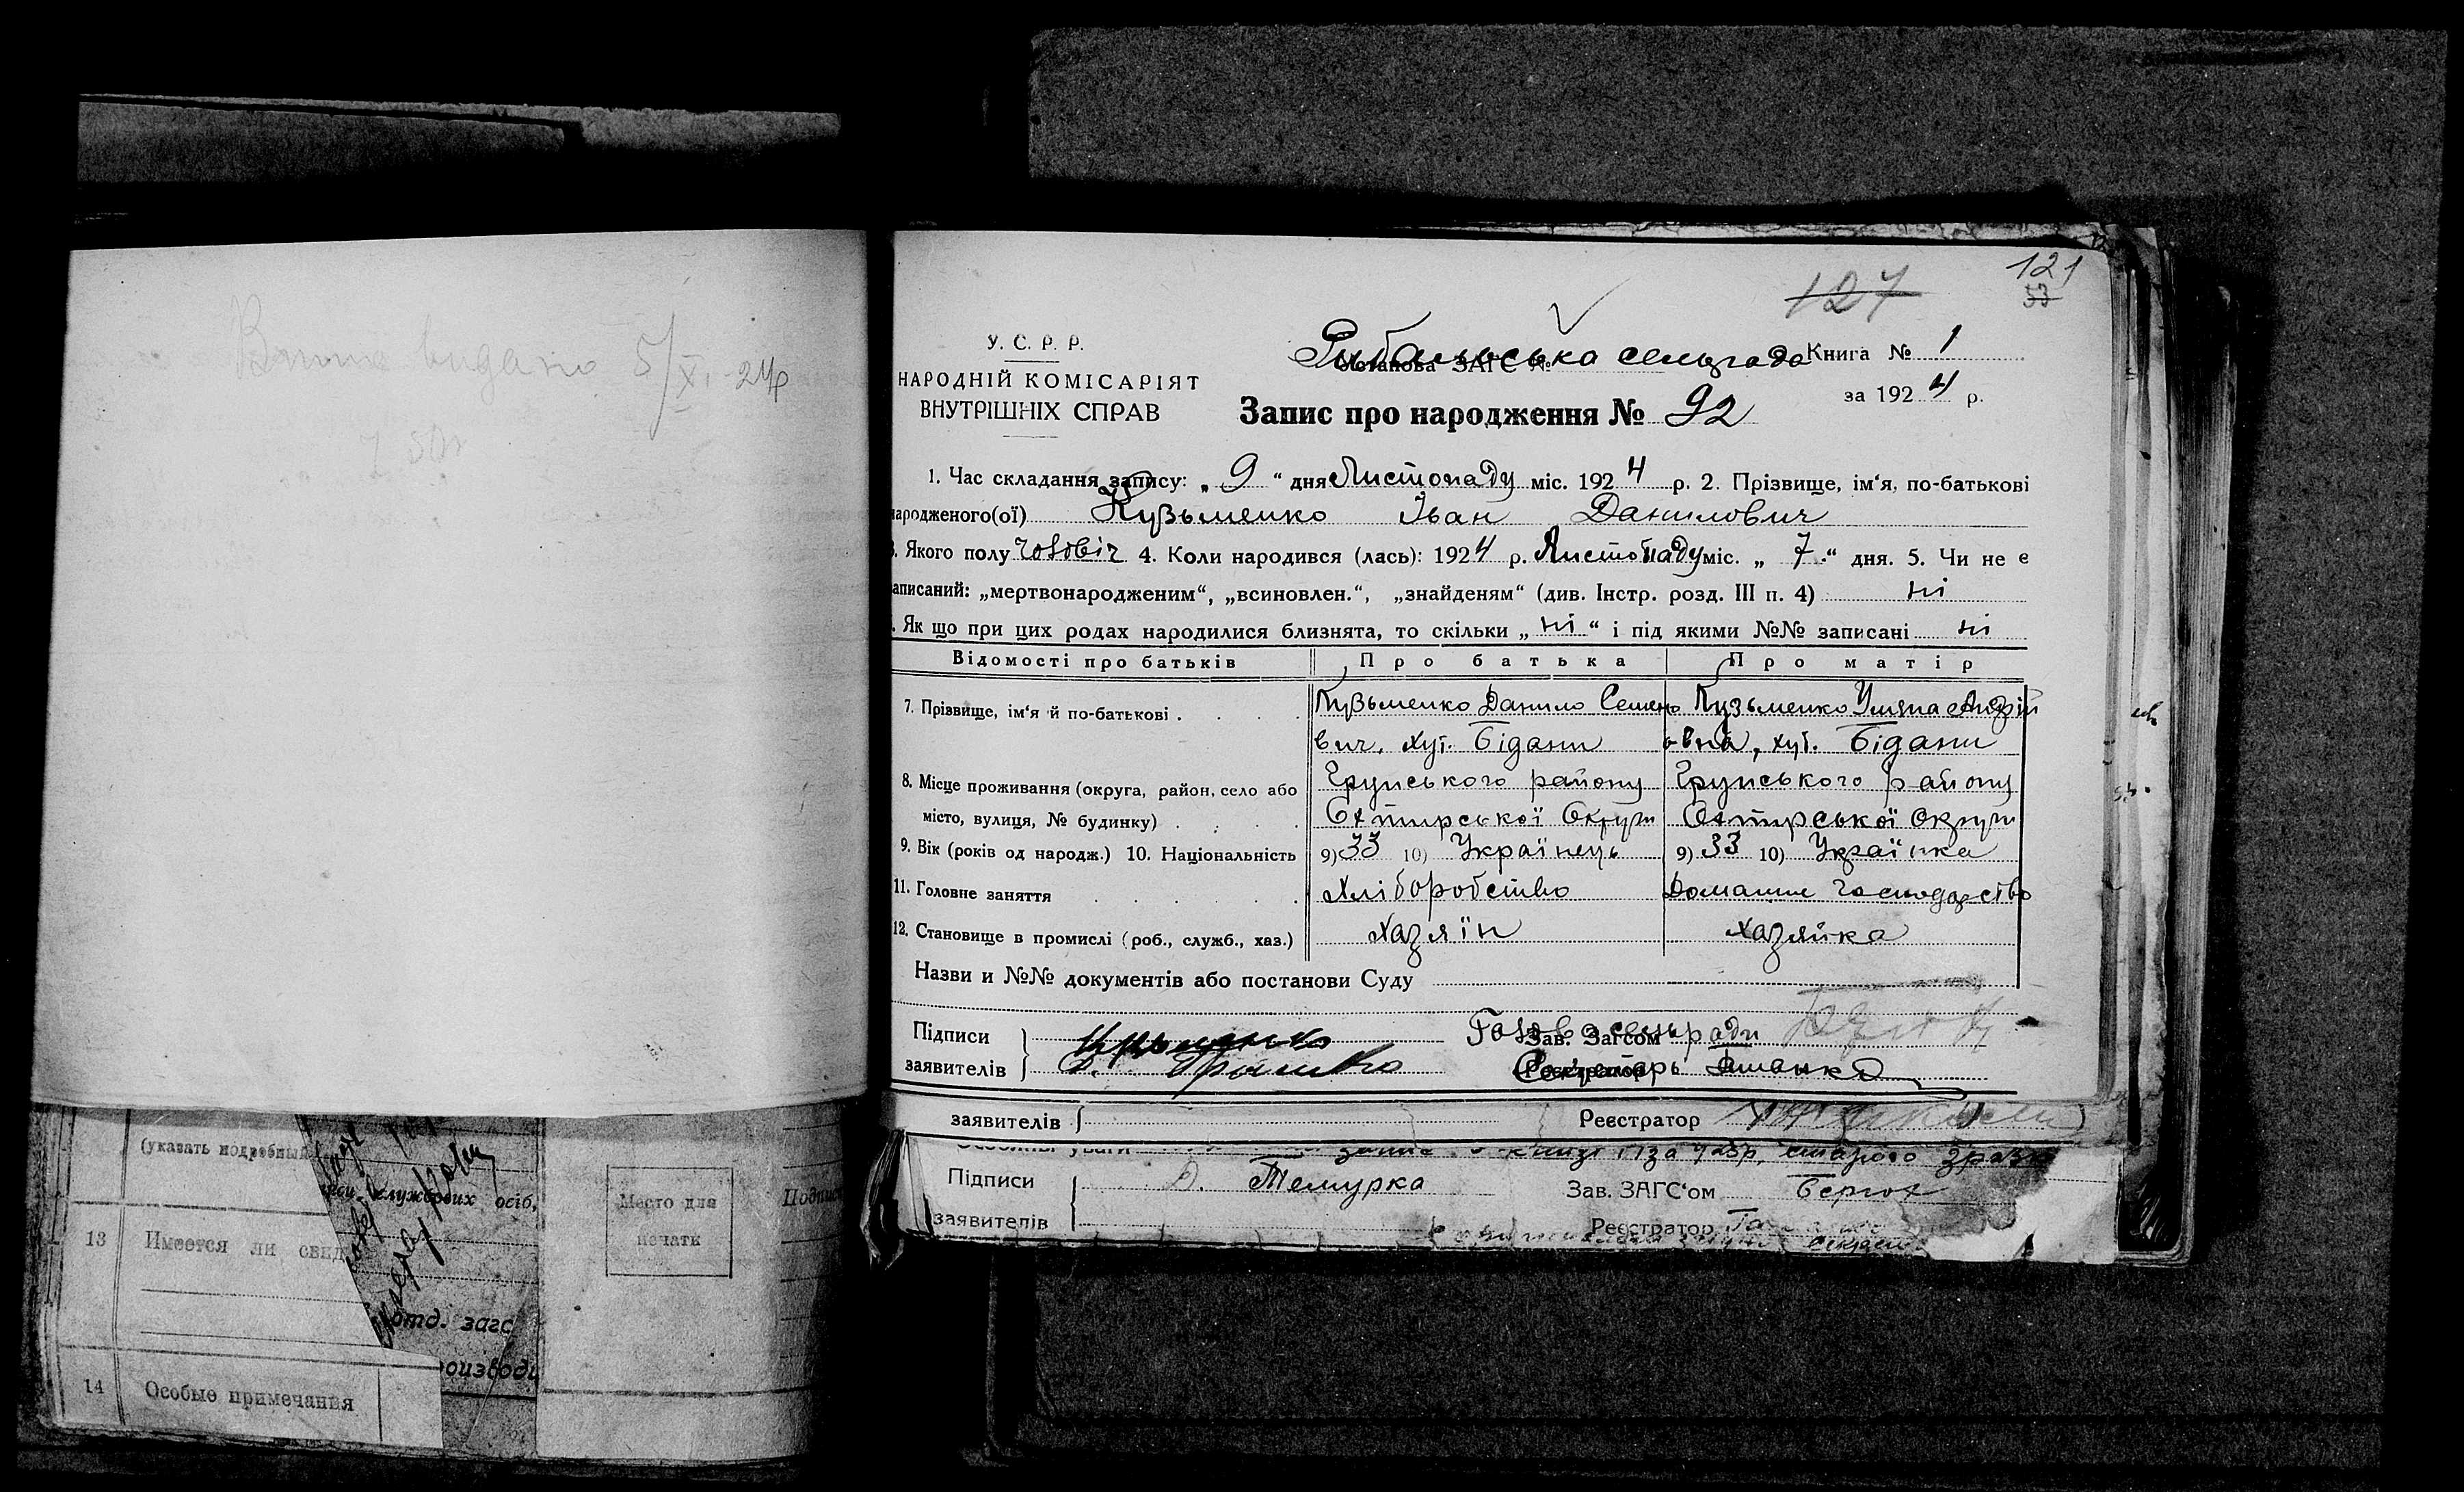 видано 5/XI-24р
127
121
53
У. С. Р. Р.
НАРОДНІЙ КОМІСАРІЯТ
ВНУТРІШНІХ СПРАВ
Рибальська сельрада
Установа ЗАГС №
Книга № 1
за 1924 р.
Запис про народження № 92
1. Час складання запису: „ 9 “ дня Листопаду міс. 1924 р. 2. Прізвище, ім‘я, по-батькові
народженого(ої) Кузьменко Іван Данилович
Якого полу чоловіч 4. Коли народився (лась): 1924 р. Листопаду міс. „ 7 “ дня. 5. Чи не є
аписаний: „мертвонародженим“, „всиновлен.“, „знайденям“ (див. Інстр. розд. III п. 4) ні
. Як що при цих родах народилися близнята, то скільки „ ні “ і під якими №№ записані ні
Відомості про батьків Про батька Про матір
7. Прізвище, ім‘я й по-батькові . . . . Кузьменко Данило Семено Кузьменко Уляна Андрій
вич, хут. Бідани овна, хут. Бідани
8. Місце проживання (округа, район, село або Грунського району Грунського району
місто, вулиця, № будинку) . . . . Охтирської Округи Охтирської Округи
9. Вік (років од народж.) 10. Національність 9) 33 10) Українець 9) 33 10) Українка
11. Головне заняття . . . . . . Хліборобство Домашнє господарство
12. Становище в промислі (роб., служб., хаз.) Хазяїн Хазяйка
Назви и №№ документів або постанови Суду
Підписи Голова сельради
Зав. Загсом
заявителів Секретарь
Реєстратор
заявителів Реєстратор
Особливі уваги запис книзі за 23р. старого
Підписи Д. Темурка Зав. ЗАГС‘ом
заявителів Реєстратор
(указать подробный
службових осіб,
Место для
печати
13 Имеется ли свид
отд. загс
14 Особые примечания